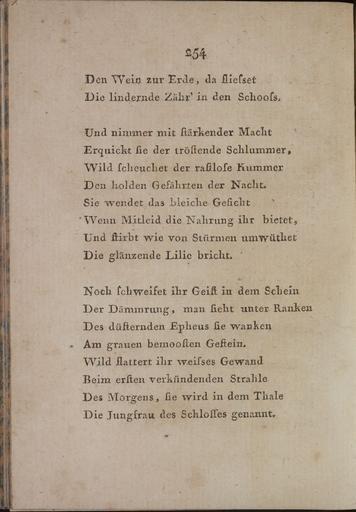 254
Den Wein zur Erde, da flieſset
Die lindernde Zähr' in den Schooſs.
Und nimmer mit ſtärkender Macht
Erquickt ſie der tröſtende Schlummer,
Wild ſcheuchet der raſtloſe Kummer
Den holden Gefährten der Nacht.
Sie wendet das bleiche Geſicht
Wenn Mitleid die Nahrung ihr bietet,
Und ſtirbt wie von Stürmen umwüthet
Die glänzende Lilie bricht.
Noch ſchweifet ihr Geiſt in dem Schein
Der Dämmrung, man ſieht unter Ranken
Des düſternden Epheus ſie wanken
Am grauen bemooſten Geſtein.
Wild flattert ihr weiſses Gewand
Beim erſten verkündenden Strahle
Des Morgens, ſie wird in dem Thale
Die Jungfrau des Schloſſes genannt.